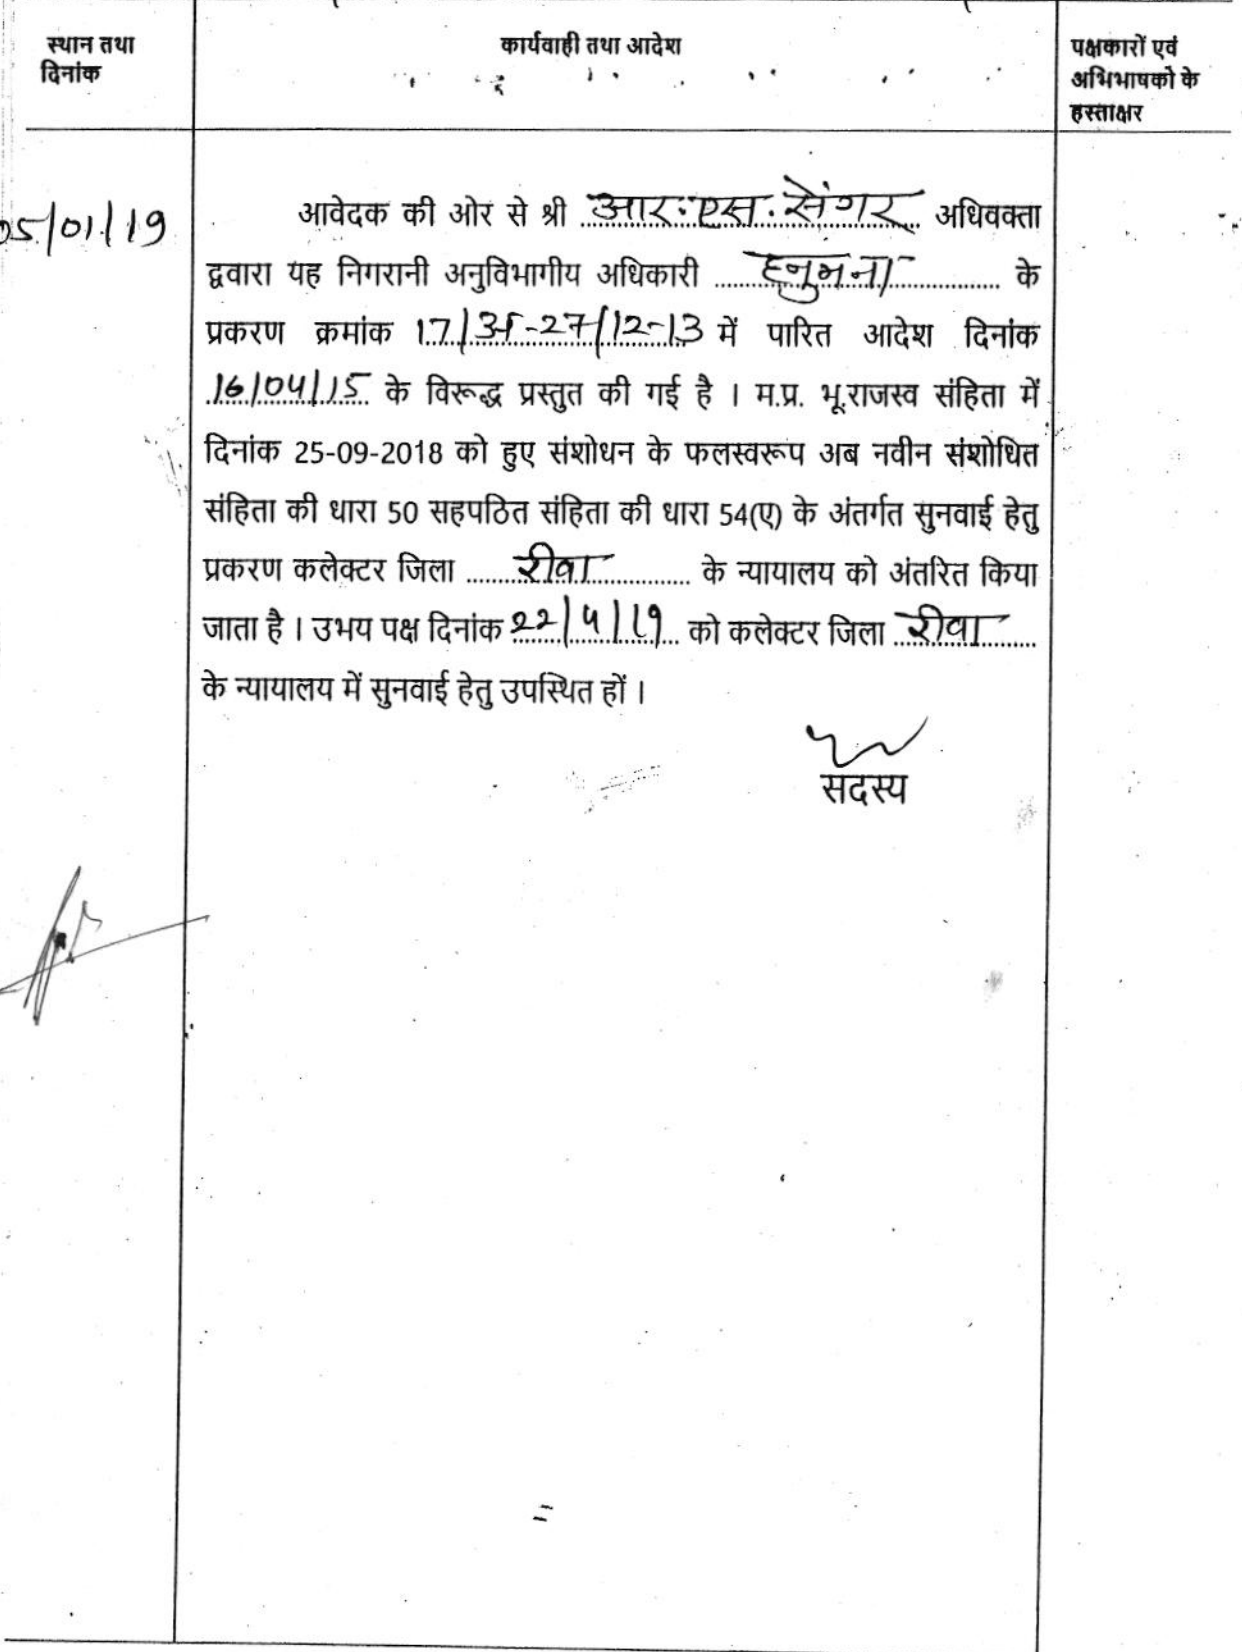 स्थान तथा
दिनांक
कार्यवाही तथा आदेश
पक्षकारों एवं
अभिभाषको के
हस्ताक्षर
05/01/19
आवेदक की ओर से श्री आर. एस. सेंगर अधिवक्ता
द्ववारा यह निगरानी अनुविभागीय अधिकारी हनुमना के
प्रकरण क्रमांक 17/अ-27/12-13 में पारित आदेश दिनांक
16/04/15 के विरूद्ध प्रस्तुत की गई है । म.प्र. भू.राजस्व संहिता में
दिनांक 25-09-2018 को हुए संशोधन के फलस्वरूप अब नवीन संशोधित
संहिता की धारा 50 सहपठित संहिता की धारा 54(ए) के अंतर्गत सुनवाई हेतु
प्रकरण कलेक्टर जिला रीवा के न्यायालय को अंतरित किया
जाता है । उभय पक्ष दिनांक 22/4/19 को कलेक्टर जिला रीवा
के न्यायालय में सुनवाई हेतु उपस्थित हों ।
सदस्य